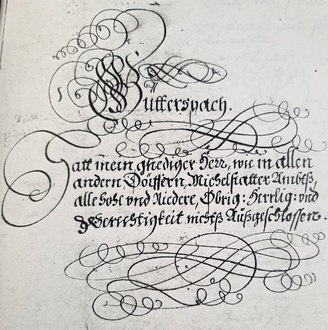 Gütterspach.
Hatt mein gnediger Herr, wie in allen
andern Dörffern, Michelstatter Ambtß,
alle hohe und Niedere, Obrig: Herrlig: und
Gerechtigkeit nichtß Außgeschlossen.